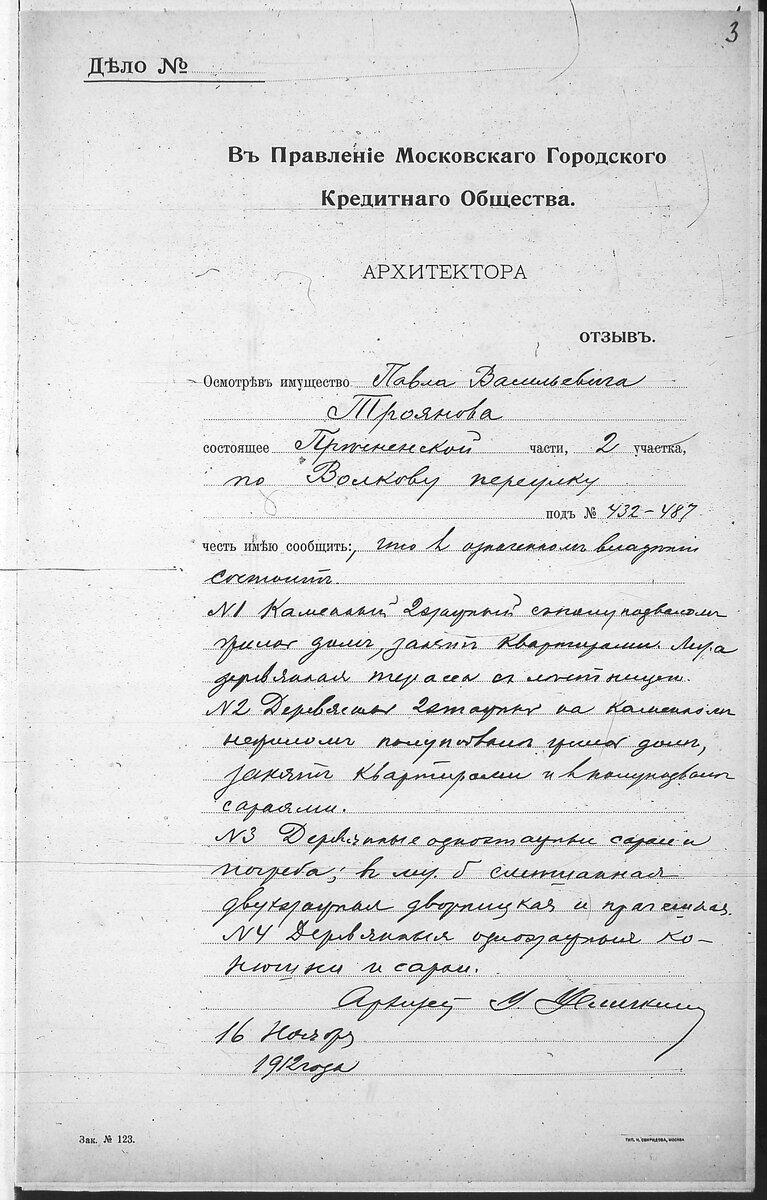 3
Дѣло №
Въ Правленіе Московскаго Городского
Кредитнаго Общества.
АРХИТЕКТОРА
ОТЗЫВЪ.
Осмотрѣвъ имущество Павла Васильевича
Троянова
состоящее Прѣсненской части, 2 участка,
по Волкову переулку
подъ № 432-487
честь имѣю сообщить:, что в означенномъ владѣніи
состоитъ.
N1 Каменный 2этажный съ полуподваломъ
жилой домъ, занятъ квартирами. Лит. а
деревянная терасса съ лѣстницей.
N2 Деревянный 2этажный на каменномъ
нежиломъ полуподвалѣ жилой домъ,
занятъ квартирами и в полуподвалѣ
сараями.
N3 Деревянные одноэтажные сараи и
погреба; в лит. б смѣшанная
двухэтажная дворницкая и прачешная.
N4 Деревянныя одноэтажныя ко-
нюшни и сараи.
16 Ноября
1912 года
Зак. № 123.
ТИП. Н. СВИРИДОВА, МОСКВА